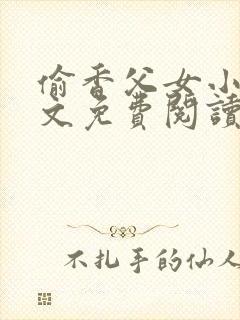 偷香父女小
文免費閱讀
不扎手的仙人